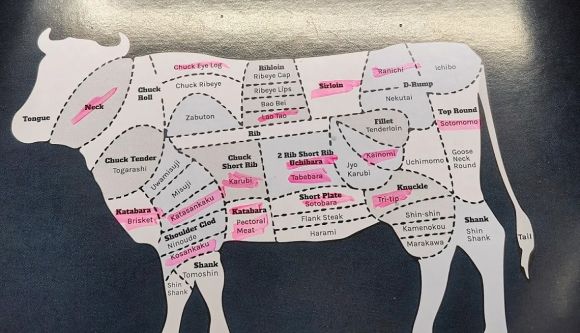 Tongue
Neck
Chuck
Roll
Chuck Eye Log
Chuck Ribeye
Zabuton
Ribloin
Ribeye Cap
Ribeye Lips
Bao Bei
Loo Tao
Rib
Sirloin
Ranichi
Ichibo
D-Rump
Nekutai
Top Round
Sotomomo
Goose
Neck
Round
Fillet
Tenderloin
Kainomi
Jyo
Karubi
Uchimomo
Chuck Tender
Togarashi
Uwamisuji
Misuji
Katasankaku
Shoulder Clod
Ninoudo
Kosankaku
Chuck
Short Rib
Karubi
2 Rib Short Rib
Uchibara
Tabebara
Short Plate
Sotobara
Flank Steak
Harami
Katabara
Brisket
Katabara
Pectoral
Meat
Knuckle
Tri-tip
Shin-shin
Kamenokou
Marakawa
Shank
Tomoshin
Shin
Shank
Shank
Shin
Shank
Tail